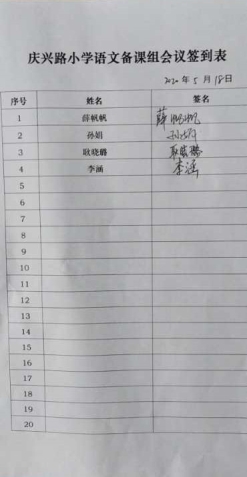 庆兴路小学语文备课组会议签到表
2020年5月18日
序号 姓名 签名
1 薛帆帆 薛帆帆
2 孙娟 孙娟
3 耿晓璐 耿晓璐
4 李涵 李涵
5
6
7
8
9
10
11
12
13
14
15
16
17
18
19
20